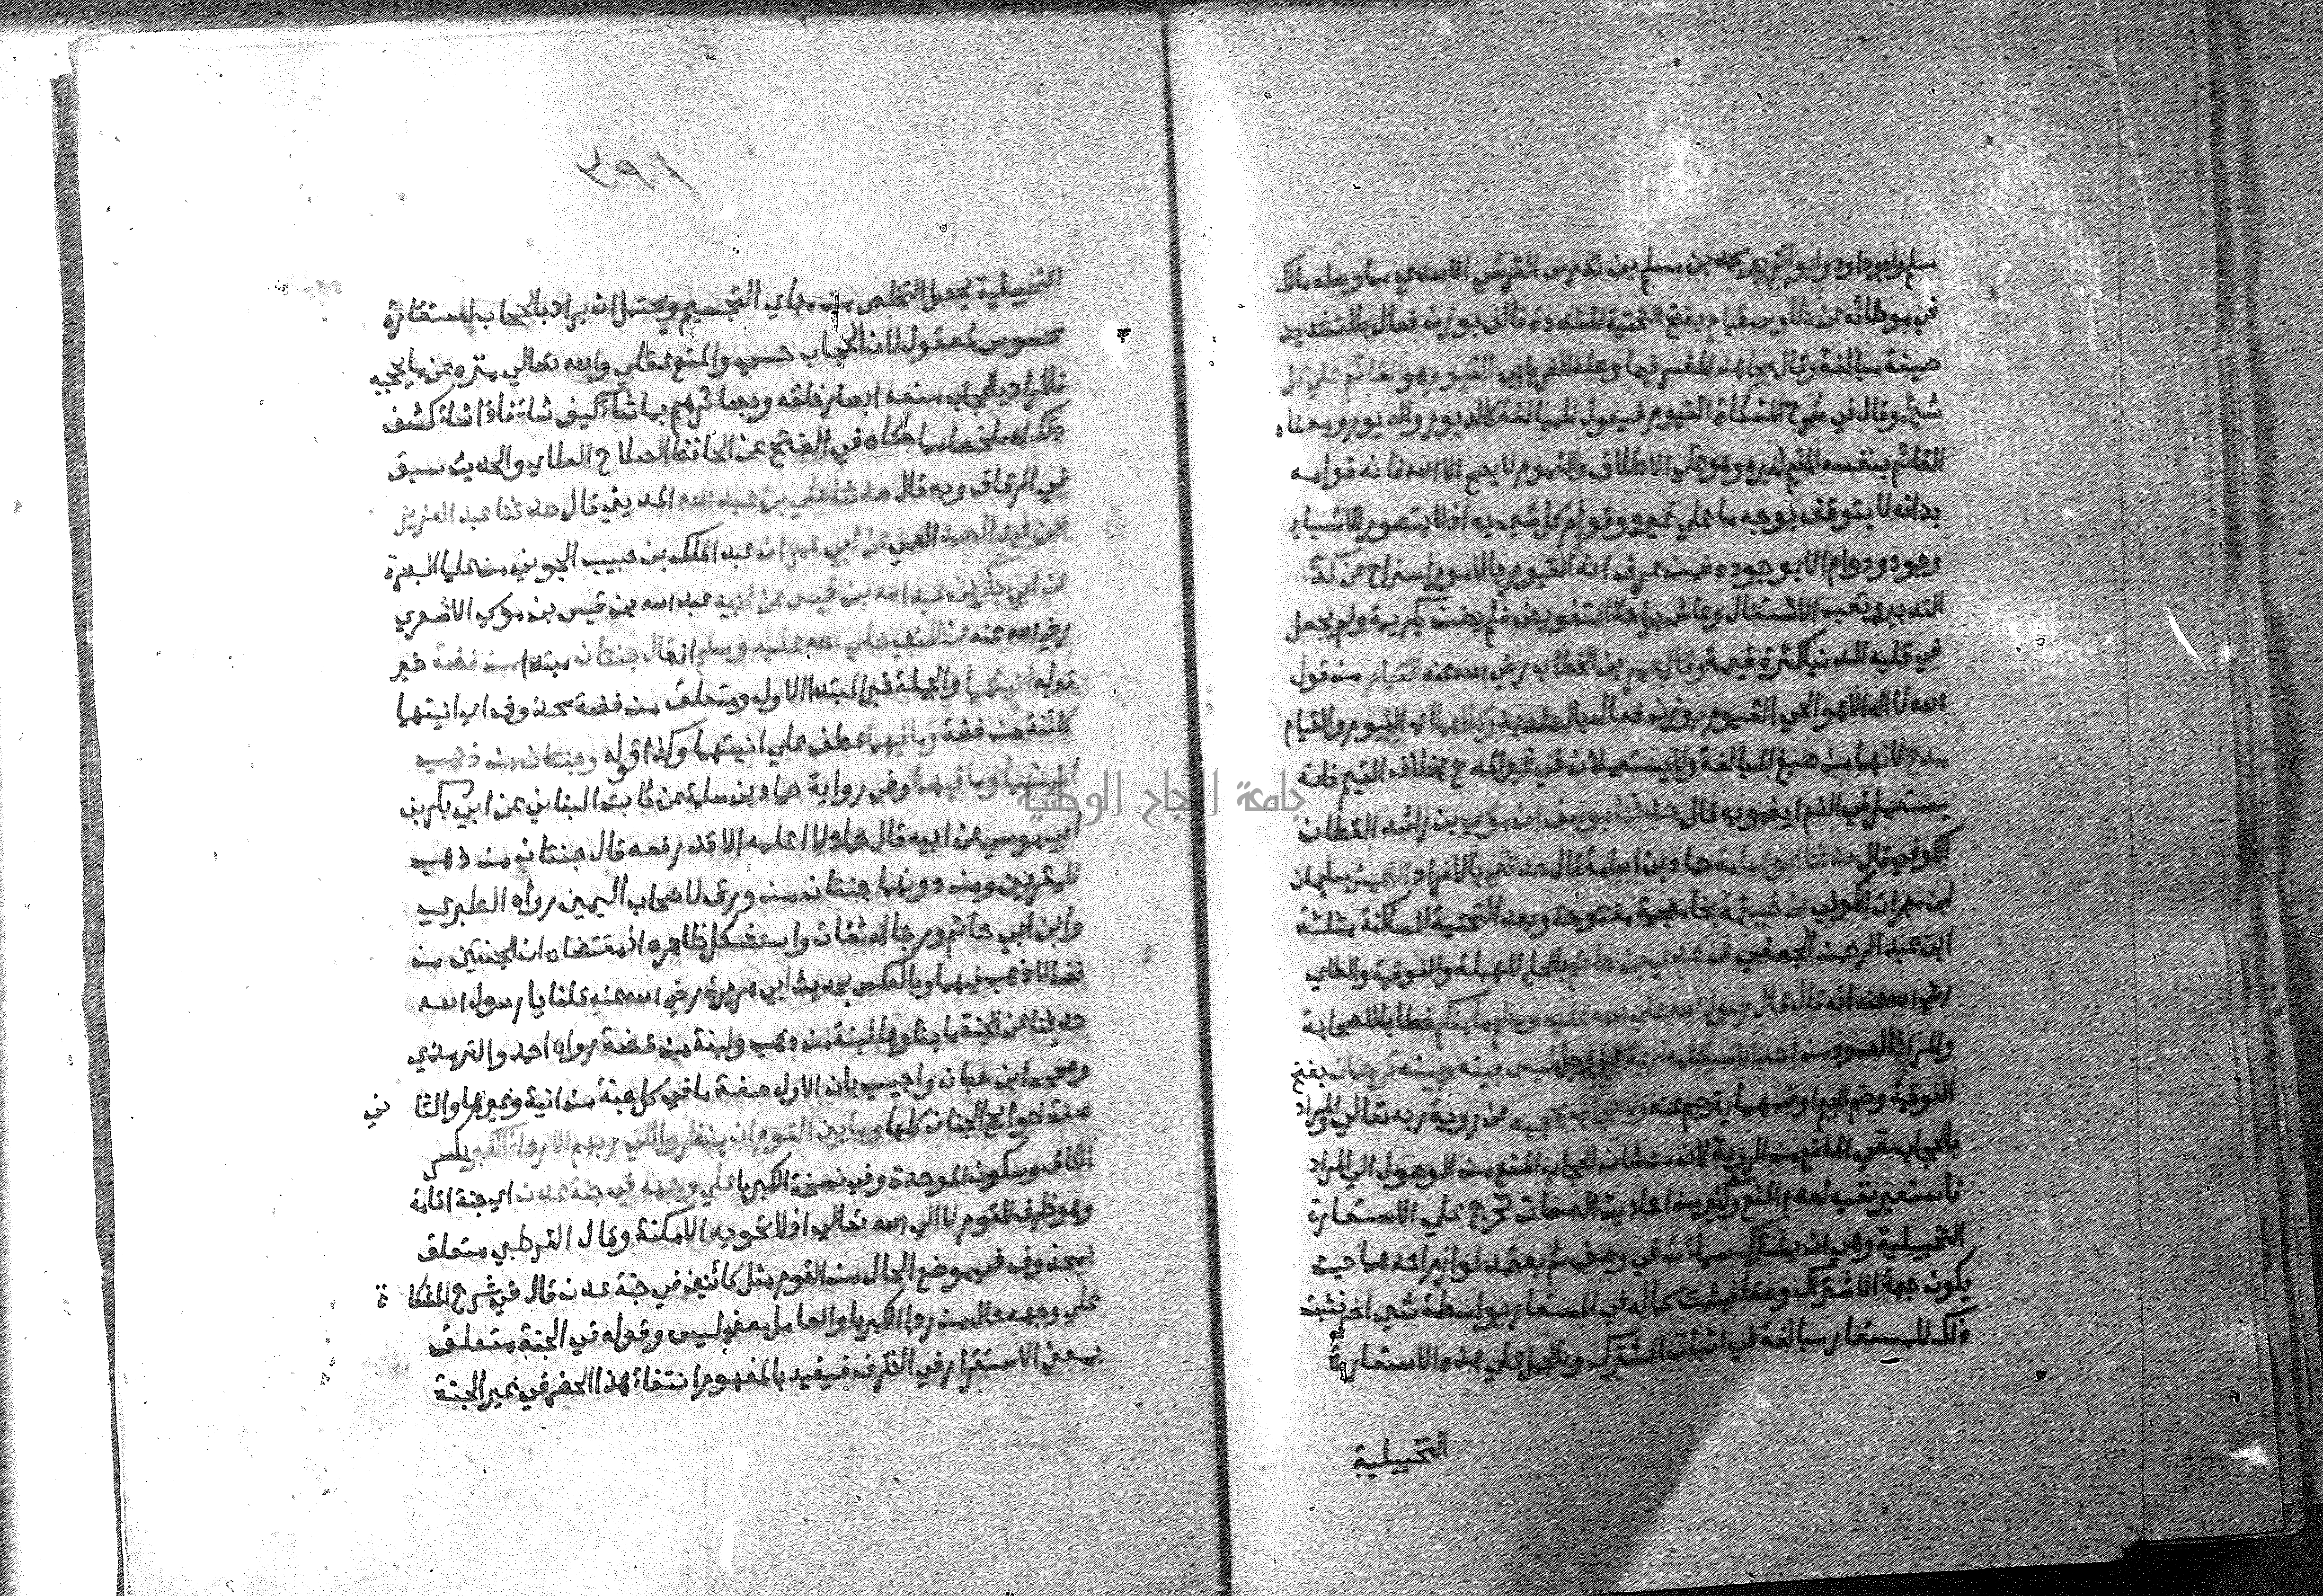 مسلم وابو داود وابو الزبير محمد بن مسلم بن تدرس القرشي الاسدي مما وصله مالك
في موطائه عن طاوس قيام بفتح التحتية المشددة فالف بوزن فعال بالتشديد
صيغة مبالغة وقال مجاهد المفسر فيما وصله الفريابي القيوم هو القائم علي كل
شيئ وقال في شرح المشكاة القيوم فيعول للمبالغة كالديور والديوم ومعناه
القائم بنفسه المقيم لغيره وهو علي الاطلاق والعموم لا يصح الا الله فانه قوامه
بذاته لا يتوقف بوجه ما علي غيره وقوام كل شي به اذ لا يتصور للاشياء
وجود ودوام الا بوجوده فمن عرف انه القيوم بالامور استراح عن كد
التدبير وتعب الاشتغال وعاش براحة التفويض فلم يضن بكريمة ولم يجعل
في قلبه للدنيا كثرة قيمة وقال عمر بن الخطاب رضي الله عنه القيام من قول
الله لا اله الا هو الحي القيوم بوزن فعال بالتشديد وكلاهما اي القيوم والقيام
مدح لانهما من صيغ المبالغة ولا يستعملان في غير المدح بخلاف القيم فانه
يستعمل في الذم ايضا وبه قال حدثنا يوسف بن موسي بن راشد القطان
الكوفي قال حدثنا ابو اسامة حماد بن اسامة قال حدثني بالافراد الاعمش سليمان
ابن مهران الكوفي عن خيثمة بخا معجمة مفتوحة وبعد التحتية الساكنة مثلثة
ابن عبد الرحمن الجعفي عن عدي بن حاتم بالحاء المهملة والفوقية والطاي
رضي الله عنه انه قال قال رسول الله صلي الله عليه وسلم ما منكم خطابا للصحابة
والمراد العموم من احد الا سيكلمه ربه عز وجل ليس بينه وبينه ترجمان بفتح
الفوقية وضم الجيم او ضمهما يترجم عنه ولا حجاب يحجبه عن روية ربه تعالي والمراد
بالحجاب نفي المانع من الروية لان من شان الحجاب المنع من الوصول الي المراد
فاستعير نفيه لعدم المنع وكثير من احاديث الصفات تخرج علي الاستعارة
التخييلية وهي ان يشترك شيأن في وصف ثم يعتمد لوازم احدهما حيث
يكون جهة الاشتراك وصفا فيثبت كماله في المستعار بواسطة شي اخر فيثبت
ذلك للمستعار مبالغة في اثبات المشترك وبالحمل علي هذه الاستعارة
التخييلية
٣٩١
التخييلية يحصل التخلص من مهاوي التجسيم ويحتمل ان يراد بالحجاب استعارة
محسوس لمعقول لان الحجاب حسي والمنع عقلي والله تعالي منزه عن ما يحجبه
فالمراد بالحجاب منعه ابصار خلقه وبصائرهم بما شاء كيف شاء فاذا شاء كشف
ذلك اه ملخصا مما حكاه في الفتح عن الحافظ الصلاح العلاي والحديث سبق
في الرقاق وبه قال حدثنا علي بن عبد الله المديني قال حدثنا عبد العزيز
ابن عبد الصمد العمي عن ابي عمران عبد الملك بن حبيب الجوني من علما البصرة
عن ابي بكر بن عبد الله بن قيس عن ابيه عبد الله بن قيس بن موسي الاشعري
رضي الله عنه عن النبي صلي الله عليه وسلم انه قال جنتان مبتدا من فضة خبر
قوله انيتهما والجملة خبر المبتدا الاول ومتعلق من فضة محذوف اي انيتهما
كائنة من فضة وما فيهما عطف علي انيتهما وكذا قوله وجنتان من ذهب
انيتهما وما فيهما وفي رواية حماد بن سلمة عن ثابت البناني عن ابي بكر بن
ابي موسي عن ابيه قال حماد لا اعلمه الا قد رفعه قال جنتان من ذهب
للمقربين ومن دونهما جنتان من ورق لاصحاب اليمين رواه الطبري
وابن ابي حاتم ورجاله ثقات واستشكل ظاهره اذ مقتضاه ان الجنتين من
فضة لا ذهب فيهما وبالعكس بحديث ابي هريرة رضي الله عنه قلنا يا رسول الله
حدثنا عن الجنة ما بناوها لبنة من ذهب ولبنة من فضة رواه احمد والترمذي
وصححه ابن حبان واجيب بان الاول صفة ما في كل جنة من انية وغيرها والثاني
صفة حوايط الجنان كلها وما بين القوم ان ينظروا الي ربهم الا رداء الكبر بكسر
الكاف وسكون الموحدة وفي نسخة الكبريا علي وجهه في جنة عدن اي جنة اقامة
وهو ظرف للقوم لا الي الله تعالي اذ لا تحويه الامكنة وقال القرطبي متعلق
بمحذوف في موضع الحال من القوم مثل كائنين في جنة عدن قال في شرح المشكاة
علي وجهه حال من رداء الكبريا والعامل معني ليس وقوله في الجنة متعلق
بمعني الاستقرار في الظرف فيفيد بالمفهوم انتفاء هذا الحصر في غير الجنة
جامعة النجاح الوطنية